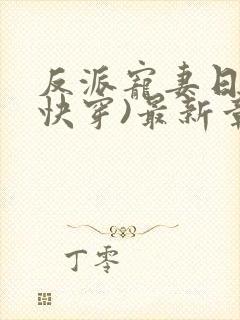 反派寵妻日
快穿)最新章
丁零